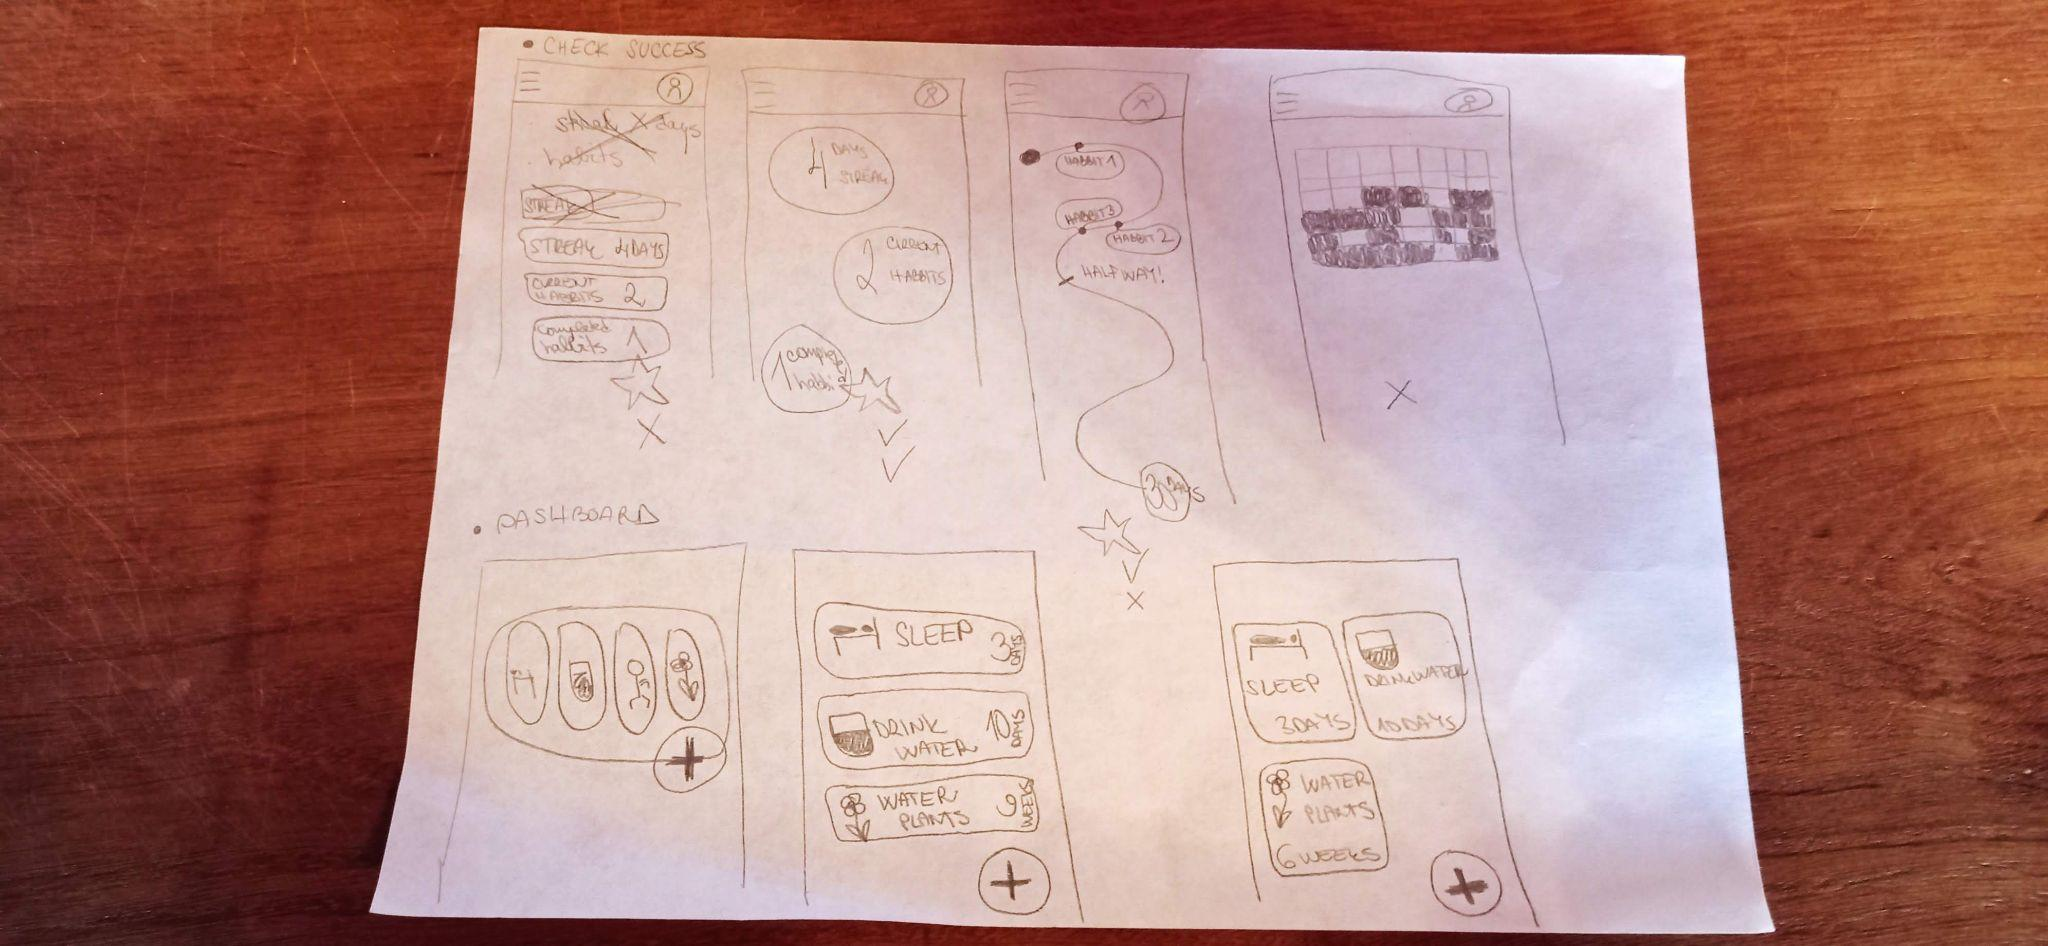 • CHECK SUCCESS
streak X days
habits
STREAK
STREAK 4 DAYS
CURRENT
HABBITS 2
Completed
habbits 1
4 DAYS
STREAK
2 CURRENT
HABBITS
1 complete
habbi
HABBIT 1
HABBIT 3
HABBIT 2
HALF WAY!
30 DAYS
• DASHBOARD
SLEEP 3 DAYS
DRINK
WATER 10 DAYS
WATER
PLANTS 9 WEEKS
SLEEP
3 DAYS
DRINK WATER
10 DAYS
WATER
PLANTS
6 WEEKS